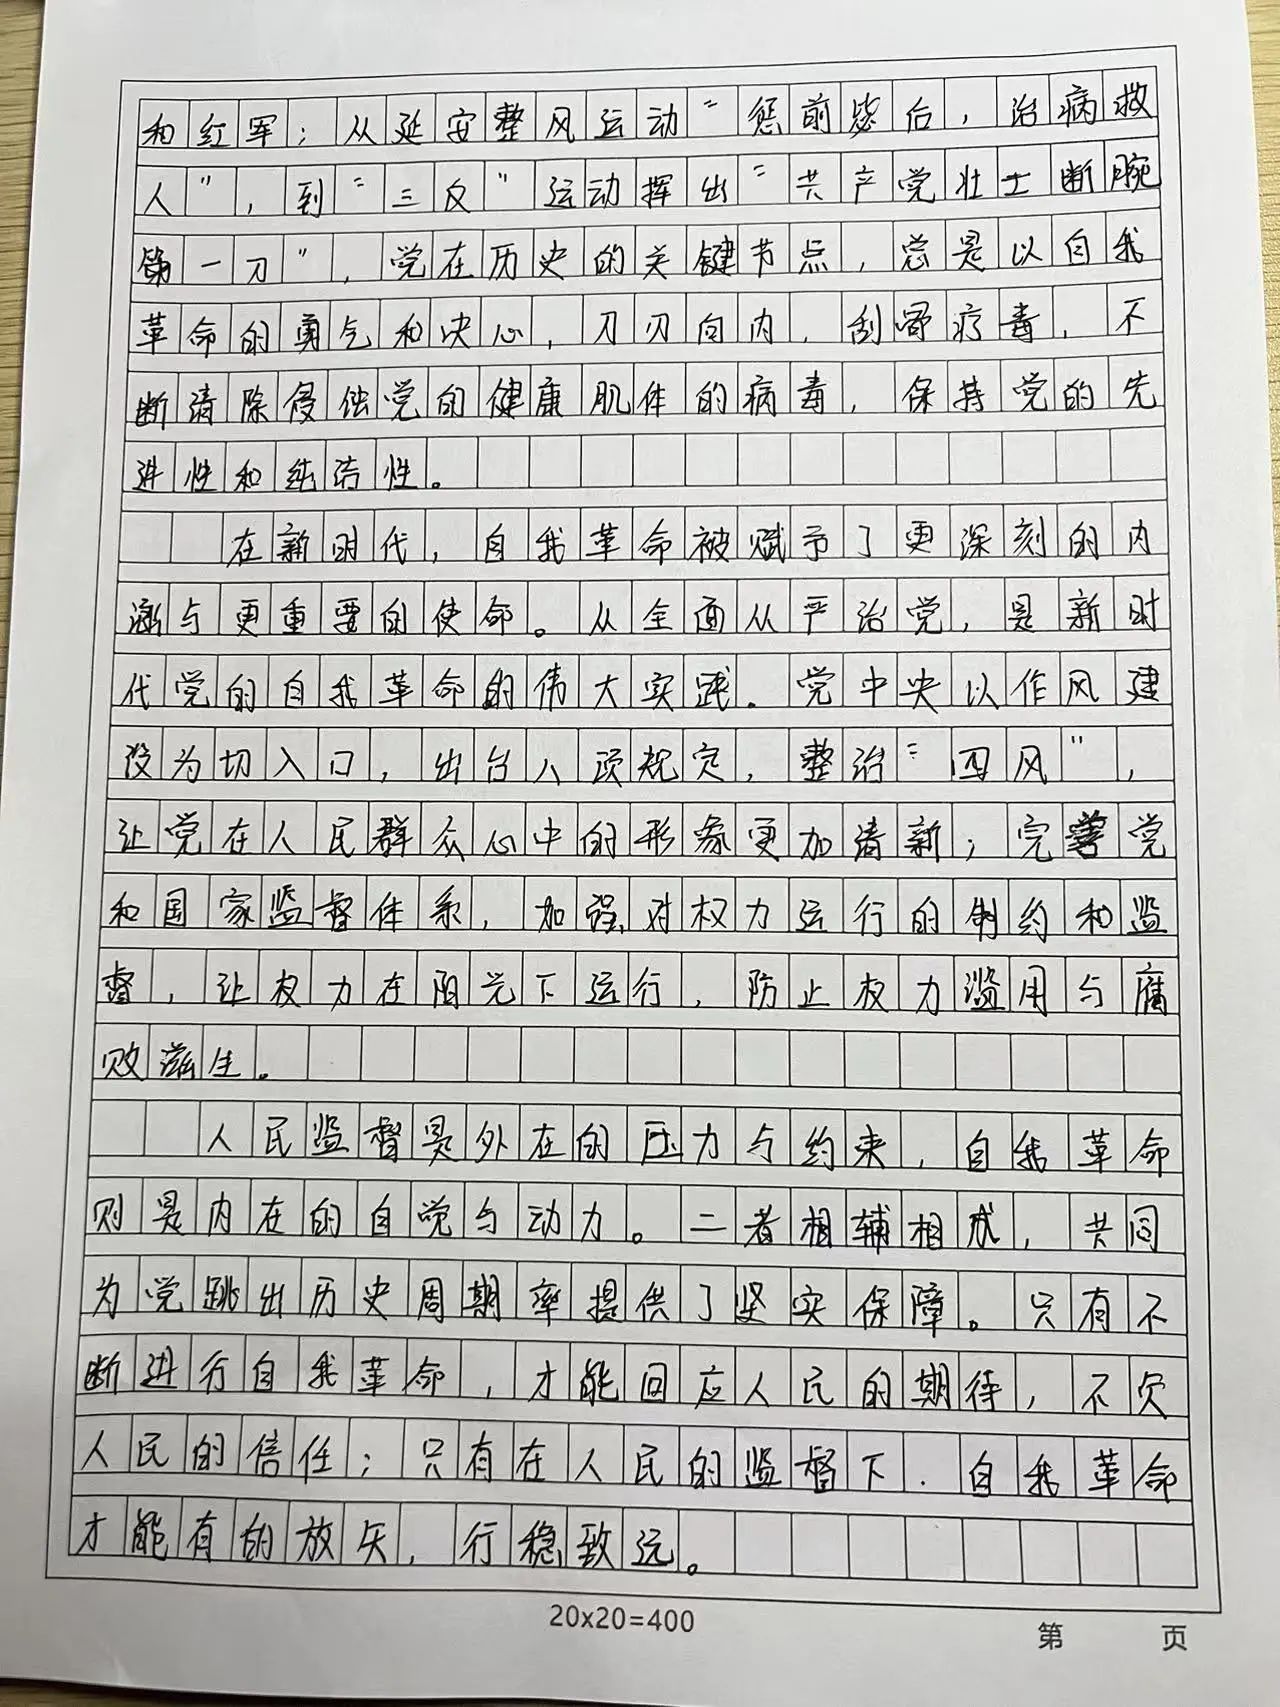 和红军；从延安整风运动“惩前毖后，治病救
人”，到“三反”运动挥出“共产党壮士断腕
第一刀”，党在历史的关键节点，总是以自我
革命的勇气和决心，刀刃向内，刮骨疗毒，不
断清除侵蚀党的健康肌体的病毒，保持党的先
进性和纯洁性。
在新时代，自我革命被赋予了更深刻的内
涵与更重要的使命。从全面从严治党，是新时
代党的自我革命的伟大实践。党中央以作风建
设为切入口，出台八项规定，整治“四风”，
让党在人民群众心中的形象更加清新；完善党
和国家监督体系，加强对权力运行的制约和监
督，让权力在阳光下运行，防止权力滥用与腐
败滋生。
人民监督是外在的压力与约束，自我革命
则是内在的自觉与动力。二者相辅相成，共同
为党跳出历史周期率提供了坚实保障。只有不
断进行自我革命，才能回应人民的期待，不欠
人民的信任；只有在人民的监督下，自我革命
才能有的放矢，行稳致远。
20x20=400
第 页